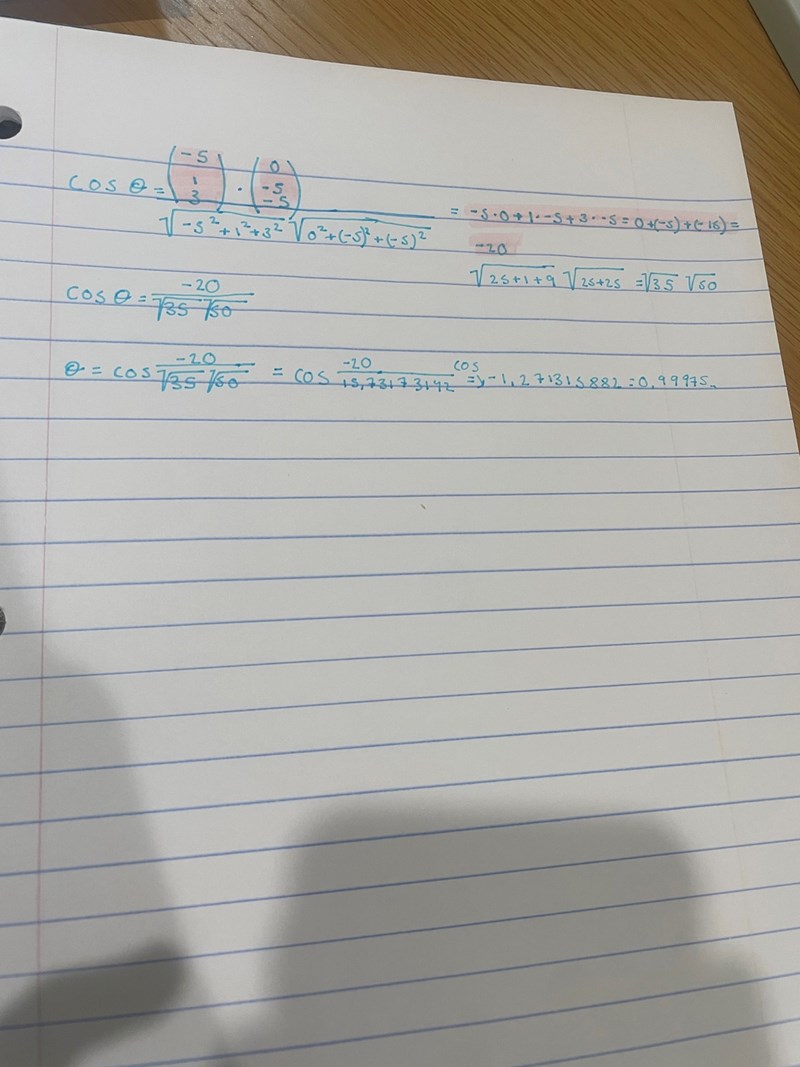 cos θ = (-5 1 3) · (0 -5 -5) / √-5² + 1² + 3² √0² + (-5)² + (-5)² = -5·0 + 1·-5 + 3·-5 = 0 + (-5) + (-15) =
-20
√25+1+9 √25+25 = √35 √50
cos θ = -20 / √35 √50
θ = cos -20 / √35 √50 = cos -20 / 15,73173142 cos => -1,271315882 = 0,99975..